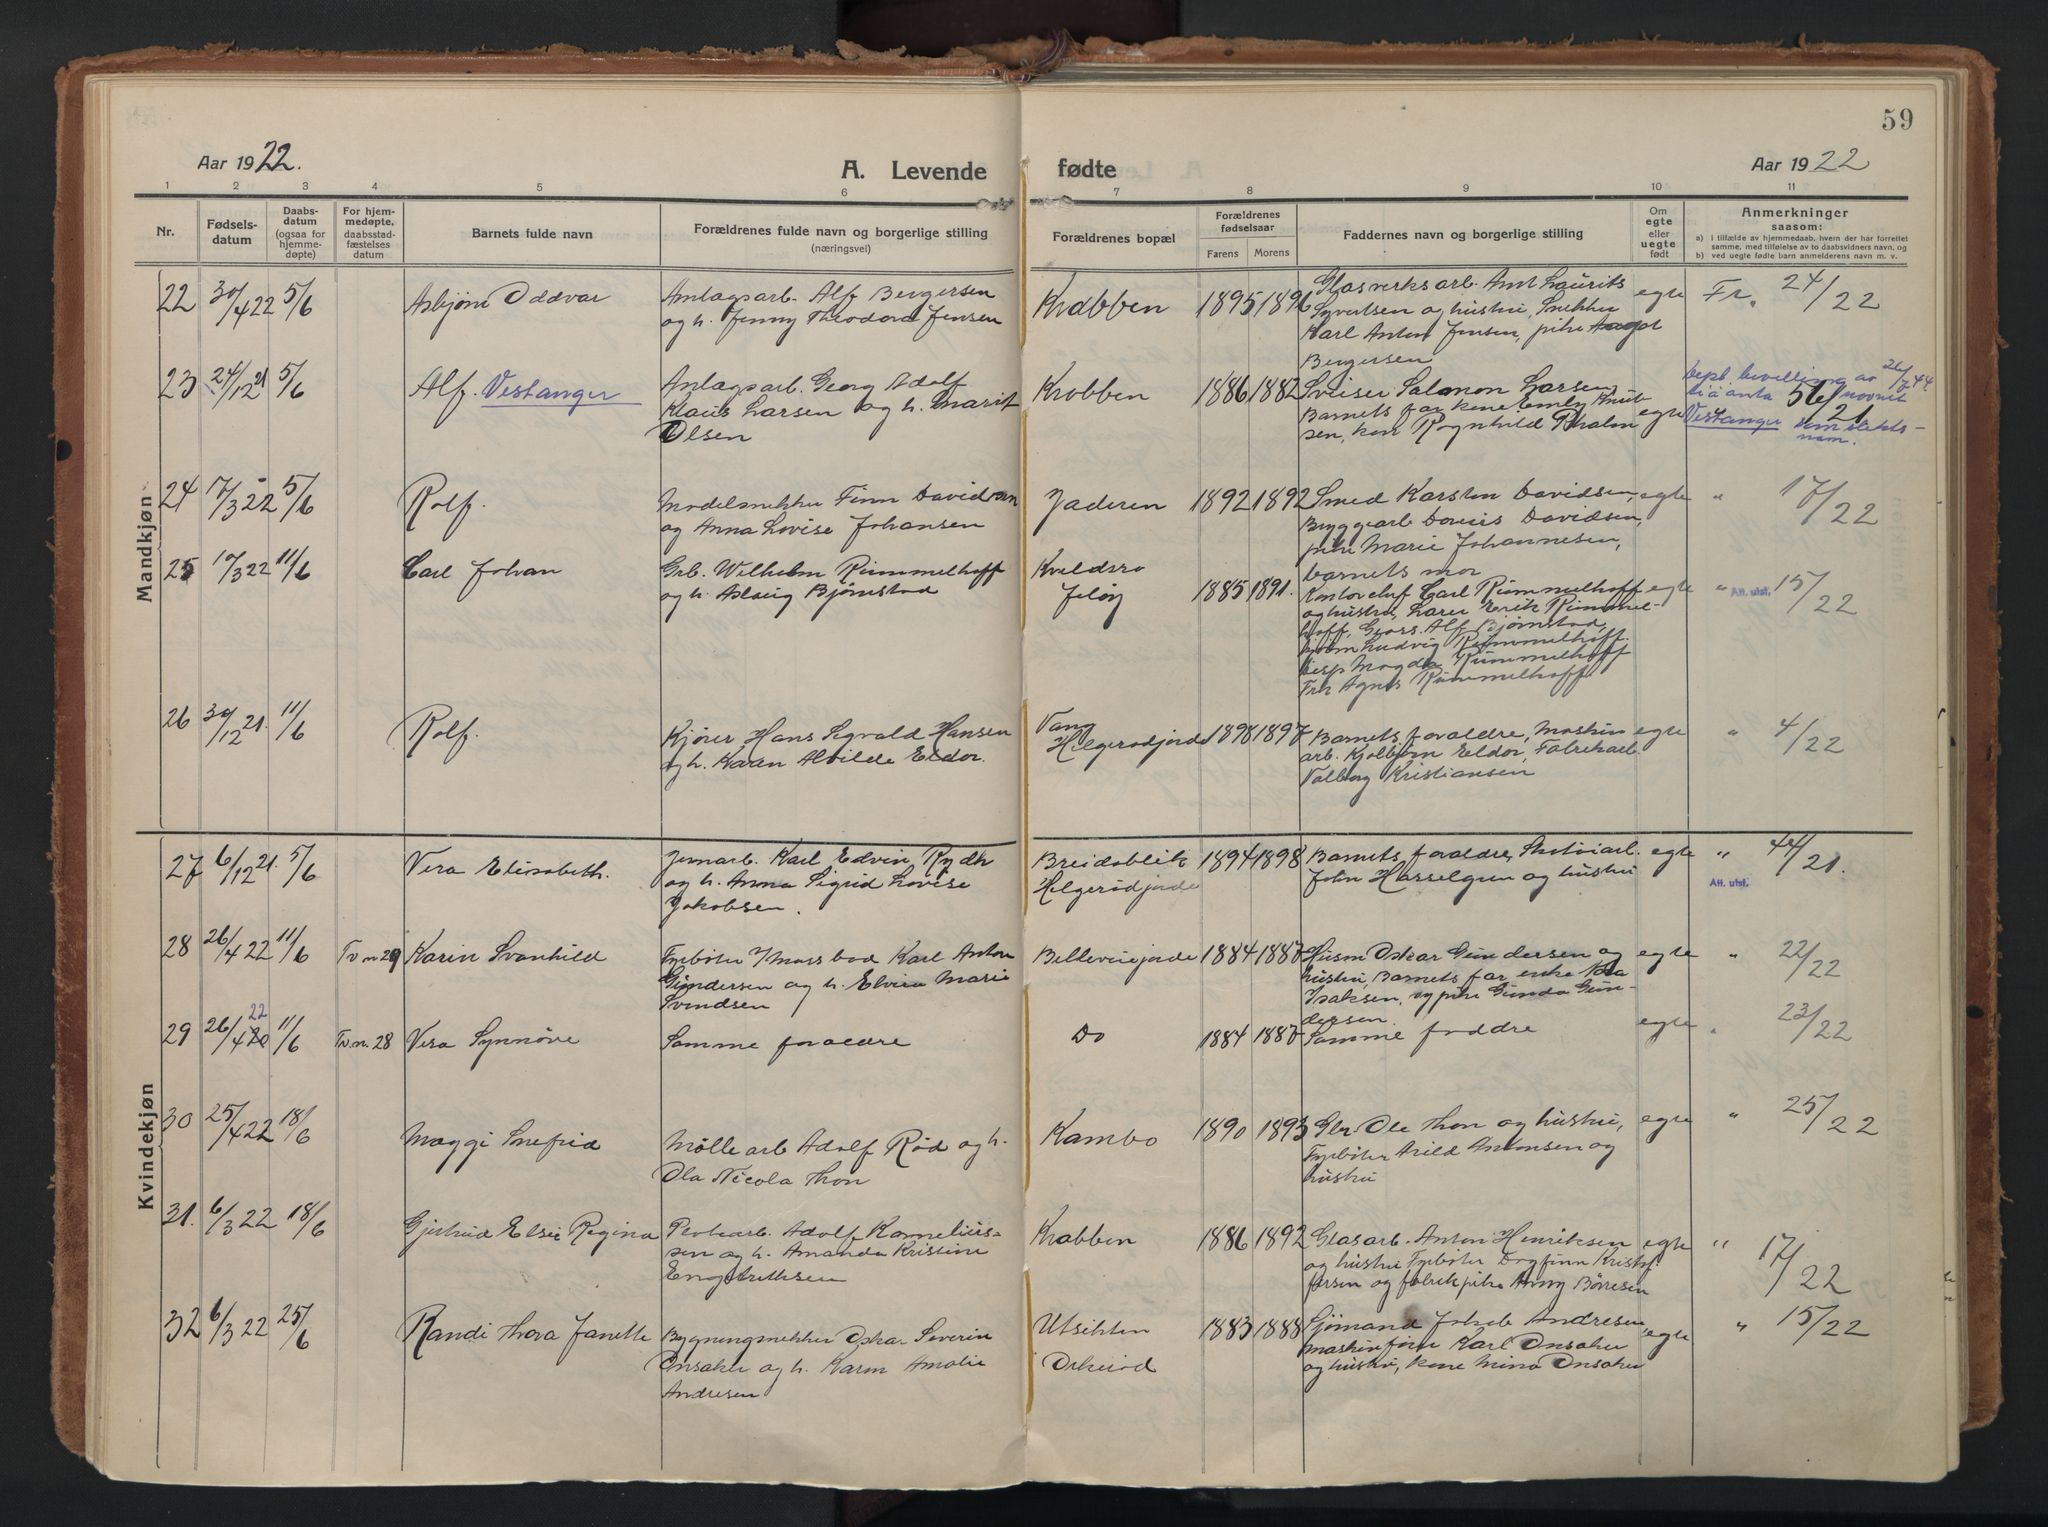 59
Aar 1922.
A. Levende fødte
Aar 1922
1 2 3 4 5 6 7 8 9 10 11
Nr.
Fødsels-
datum
Daabs-
datum
(ogsaa for
hjemme-
døpte)
For hjem-
medøpte,
daabsstad-
fæstelses
datum
Barnets fulde navn
Forældrenes fulde navn og borgerlige stilling
(næringsvei)
Forældrenes bopæl
Forældrenes
fødselsaar
Farens Morens
Faddernes navn og borgerlige stilling
Om
egte
eller
uegte
født
Anmerkninger
saasom:
a) i tilfælde av hjemmedaab, hvem der har forrettet
samme, med tilføielse av to daabsvidners navn, og
b) ved uegte fødte barn anmelderens navn m. v.
Mandkjøn
22 30/4 22 5/6 Asbjørn Oddvar
Anlagsarb. Alf Bergersen
og h. Jenny Theodora Jensen
Krabben 1895 1896
Glasverksarb. Laurits
Syvertsen og hustru, Snekker
Karl Anton Jensen, pike
Bergersen
egte Fr. 24/22
23 24/12 21 5/6 Alf. Vestanger
Anlagsarb. Georg Adolf
Klaus Larsen og h. Marit
Olsen
Krabben 1886 1882
Sveiser Salomon Larsen
Barnets far, kone Emly Knut-
sen, kone Ragnhild Tholm
egte
bevilling av 26/7 44.
til å anta 56/21 navnet
Vestanger som slekts-
navn.
24 17/3 22 5/6 Rolf.
Modelsnekker Finn Davidsen
og Anna Lovise Johansen
Jaderen 1892 1892
Smed Karsten Davidsen,
Bryggearb. Davidsen,
pike Marie Johannesen,
barnets mor
egte " 17/22
25 17/3 22 11/6 Carl Johan
Grb. Wilhelm Rummelhoff
og h. Aslaug Bjørnstad
Kveldsro
Jeløy
1885 1891.
Kontorchef Carl Rummelhoff
og hustru, Erik Rummel-
hoff, Gross. Alf Bjørnstad,
Ludvig Rummelhoff.
Magda Rummelhoff
Frk Agnes Rummelhoff
egte " Att. utst. 15/22
26 30/12 21. 11/6 Rolf.
Kjører Hans Sigvald Hansen
og h. Karen Alvilde Eldor.
Vang
Helgerødjorde
1898 1897
Barnets foraldre, Maskin
arb. Kolbjørn Eldor, Fabrikarb.
Valborg Kristiansen
egte " 4/22
Kvindekjøn
27 6/12 21. 5/6 Vera Elisabeth.
Jernarb. Karl Edvin Rydh
og h. Anna Sigrid Lovise
Jakobsen.
Breidablik
Helgerødjorde
1894 1898
Barnets foraldre,
John Hasselgren og hustru
egte " 44/21.
Att. utst.
28 26/4 22 11/6 Tv. n 29 Karin Svanhild
Fyrbøter v/Moss bad Karl Anton
Gundersen og h. Elvira Marie
Svendsen
Bellevuejorde 1884 1887
Husm Oskar Gundersen og
hustru, Barnets far, enke
Isaksen, sypike Gunda Gun-
dersen
egte " 22/22
29 26/4 22 11/6 Tv. n. 28 Vera Synnøve
Samme foraldre
Do 1884 1887
Samme faddre
egte " 23/22
30 25/4 22 18/6 Maggi Snefrid
Møllearb Adolf Rød og h.
Ola Nicola Thon
Kambo 1890 1893
Gbr. Ole Thon og hustru,
Fyrbøter Arild Antonsen og
hustru
egte " 25/22
31. 6/3 22 18/6 Gjertrud Elsie Regina
Adolf Kornelius-
sen og h. Amanda Kristine
Engebrethsen
Krabben 1886 1892
Glasarb. Anton Henriksen
og hustru Fyrbøter Dagfinn Kristof-
fersen og fabrikpike Anny Børresen
egte " 17/22
32 6/3 22 25/6 Randi Thora Janette
Bygningsnekker Oskar Severin
Onsaker og h. Karen Amalie
Andresen
Utsikten
Orkerød
1883 1888
Sjømand Jakob Andresen
maskinfører Karl Onsaker
og hustru, kone Mina Onsaker
egte " 15/22